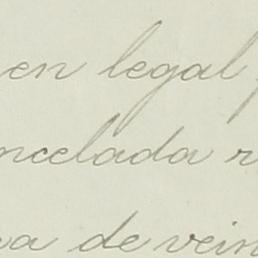 en legal
ncelada
va de vein